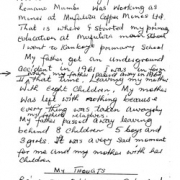 Romano Mumba was working as
Mines at Mufulira Copper Mines Ltd.
That is where I started my primary
education at Mufulira mines
I went to Kankoyo primary School
My father got an underground
accident in 1961 I was in form
when my father passed away in
that time leaving my mother
With eight Children, My mother
was left with nothing because
every thing was taken away by
my father's relatives.
My father passed away leaving
behind 8 children 5 boys and
3 girls. It was a very sad moment
for me and my mother with her
Children.
MY THOUGHTS